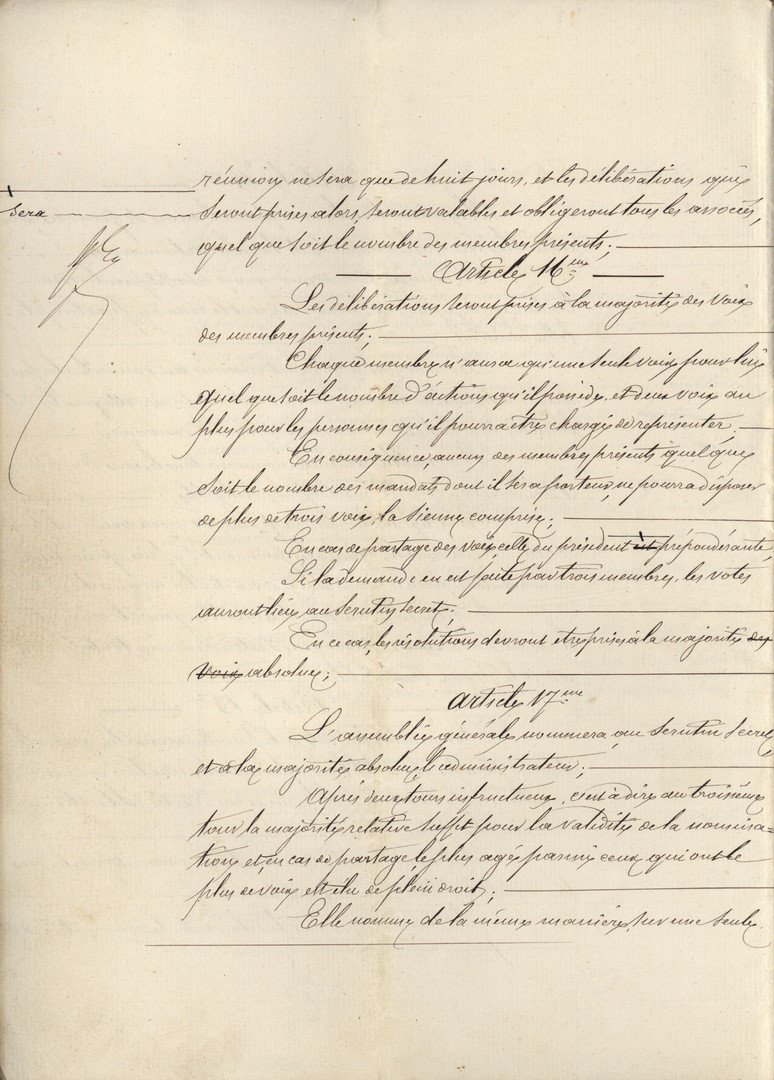 réunion ne sera que de huit jours, et les délibérations qui
sera
seront prises alors, seront valables et obligeront tous les associés,
quel que soit le nombre des membres présents;
Article 16me
Les délibérations seront prises à la majorité des voix
des membres présents;
Chaque membre n'aura qu'une seule voix pour lui
quel que soit le nombre d'actions qu'il possède, et deux voix au
plus pour les personnes qu'il pourra être chargé de représenter,
En conséquence, aucun des membres présents quel que
soit le nombre des mandats dont il sera porteur, ne pourra disposer
de plus de trois voix, la sienne comprise;
En cas de partage des voix, celle du président est prépondérante,
Si la demande en est faite par trois membres, les votes
auront lieu au scrutin secret;
En ce cas, les résolutions devront être prises à la majorité des
voix absolue;
Article 17me
L'assemblée générale nommera, au scrutin secret
et à la majorité absolue, l'administrateur;
Après deux tours infructueux, c'est à dire au troisième
tour la majorité relative suffit pour la validité de la nomina=
tion et, en cas de partage le plus agé parmi ceux qui ont le
plus de voix est élu de plein droit;
Elle nomme de la même manière, sur une seule